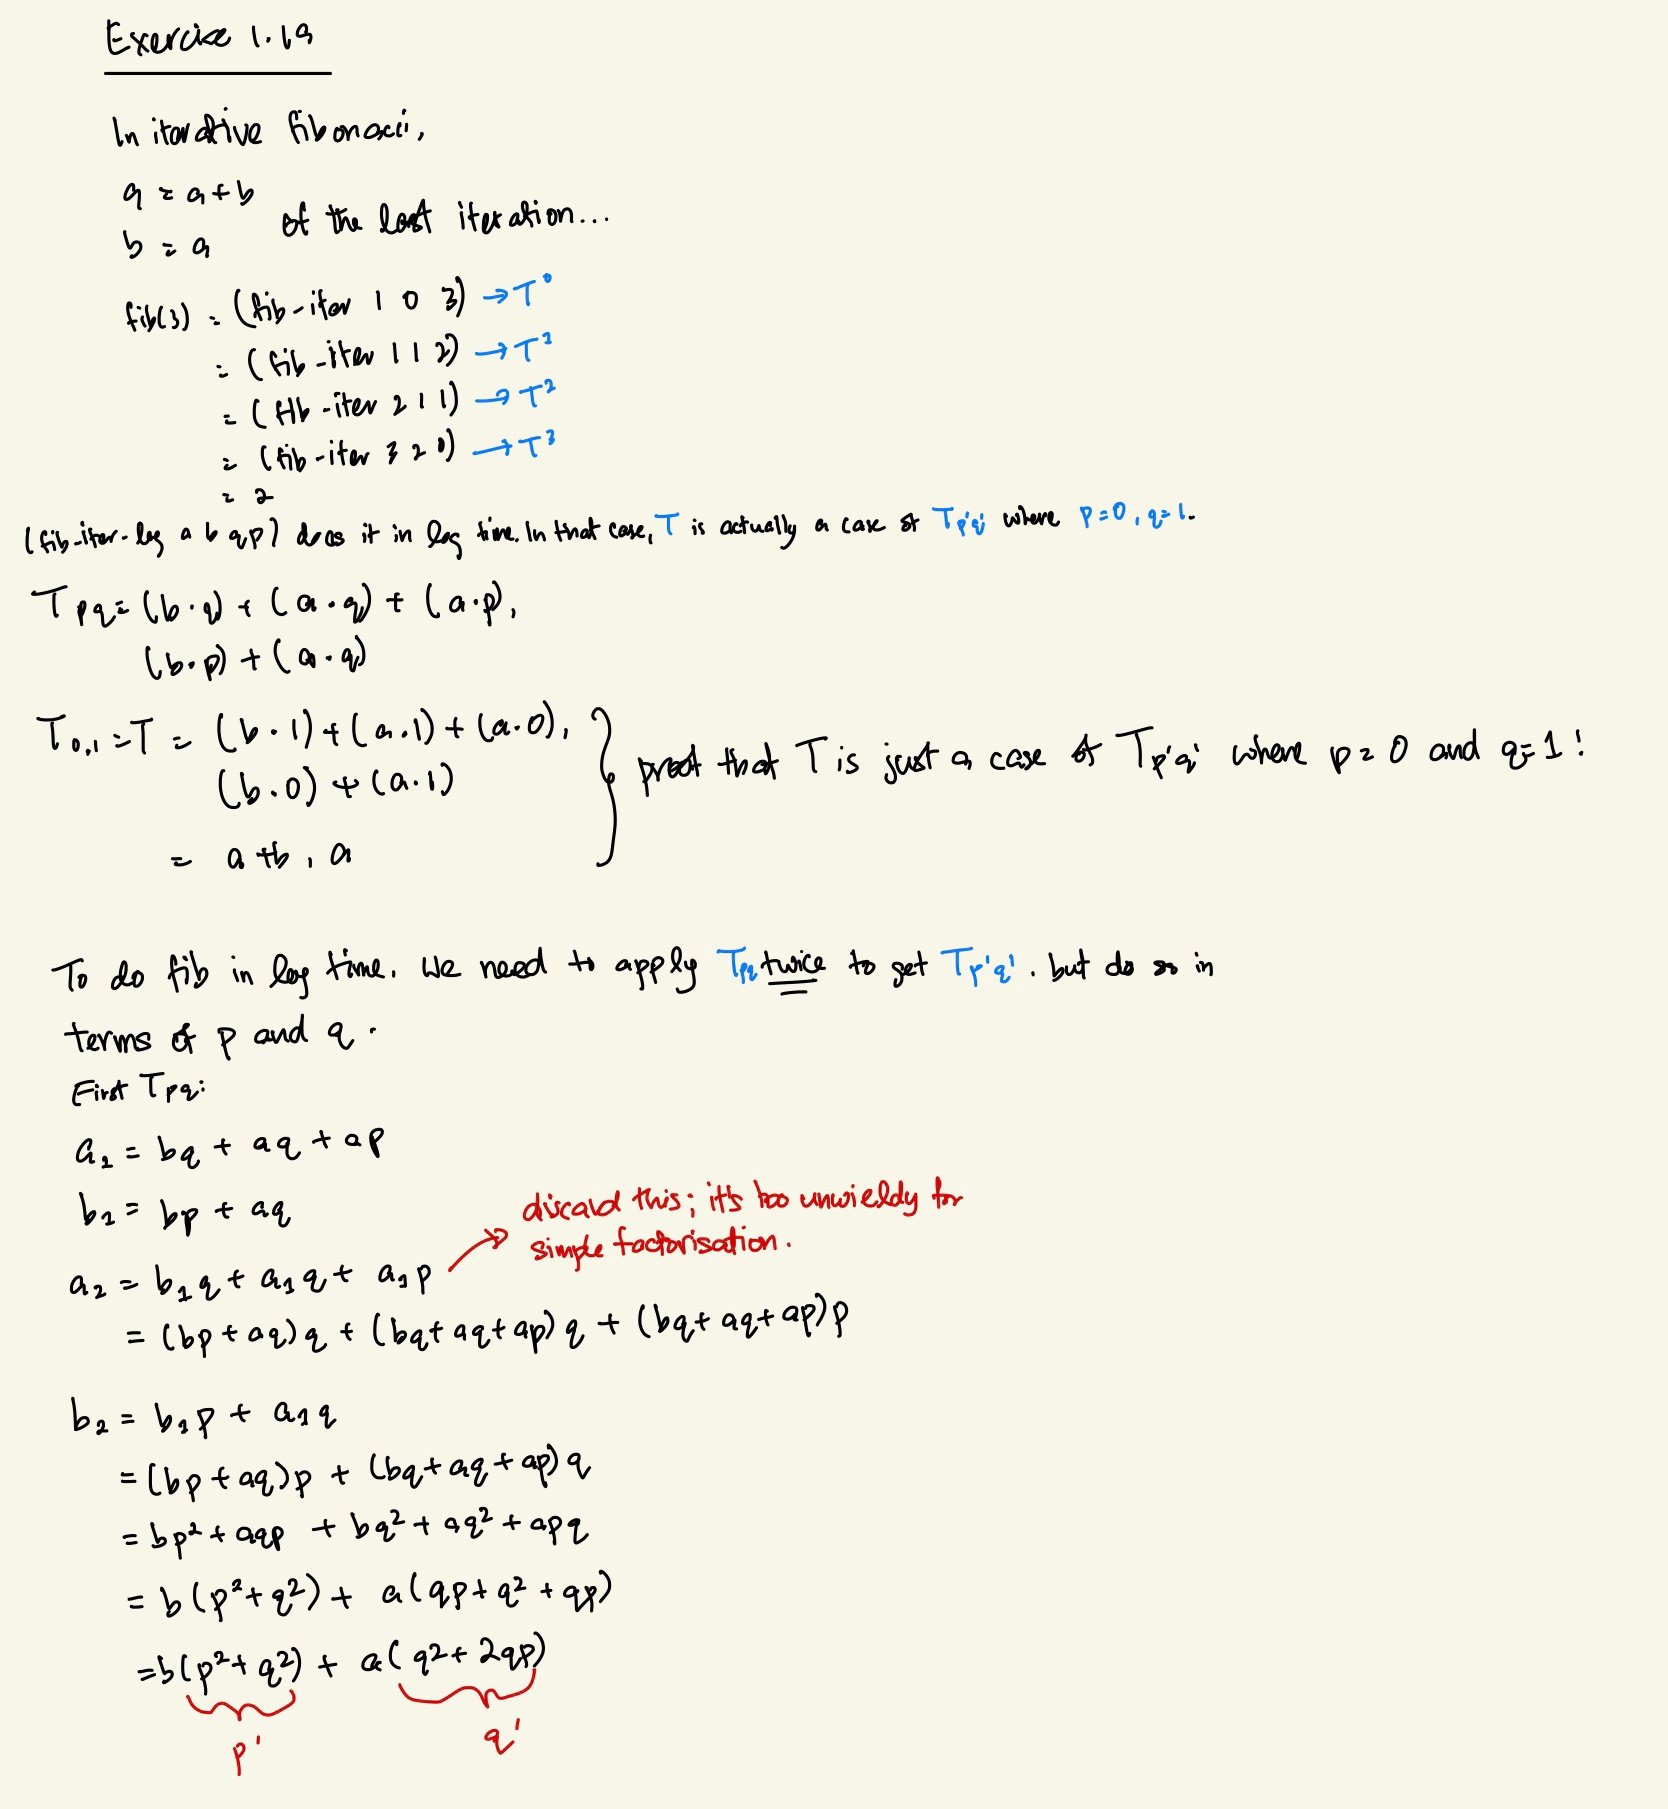 Exercise 1.19
In iterative fibonacci,
a = a + b
b = a
of the last iteration...
fib(3) = (fib-iter 1 0 3) → T⁰
= (fib-iter 1 1 2) → T¹
= (fib-iter 2 1 1) → T²
= (fib-iter 3 2 0) → T³
= 2
(fib-iter-log a b q p) does it in log time. In that case, T is actually a case of Tp'q' where p=0, q=1.
Tpq = (b·q) + (a·q) + (a·p),
(b·p) + (a·q)
T0,1 = T = (b·1) + (a·1) + (a·0),
(b·0) + (a·1)
= a+b, a
proof that T is just a case of Tp'q' where p = 0 and q = 1!
To do fib in log time. We need to apply Tpq twice to get Tp'q'. but do so in
terms of p and q.
First Tpq:
a₁ = bq + aq + ap
b₁ = bp + aq
discard this; it's too unwieldy for
simple factorisation.
a₂ = b₁q + a₁q + a₁p
= (bp + aq)q + (bq + aq + ap)q + (bq + aq + ap)p
b₂ = b₁p + a₁q
= (bp + aq)p + (bq + aq + ap)q
= bp² + aqp + bq² + aq² + apq
= b(p² + q²) + a(qp + q² + qp)
= b(p² + q²) + a(q² + 2qp)
p' q'